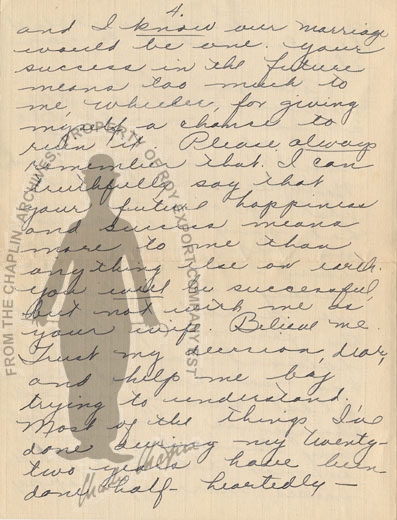 4.
and I know our marriage
would be one. Your
success in the future
means too much to
me, Wheeler, for giving
myself a chance to
ruin it. Please, always
remember that. I can
truthfully say that
your future happiness
and success means
more to me than
anything else on earth.
You will be successful,
but not with me as
your wife. Believe me.
Trust my decision, dear,
and help me by
trying to understand.
Most of the things I've
done during my twenty-
two years have been
done half-heartedly —
FROM THE CHAPLIN ARCHIVES. PROPERTY OF ROY EXPORT COMPANY EST
Charles Chaplin